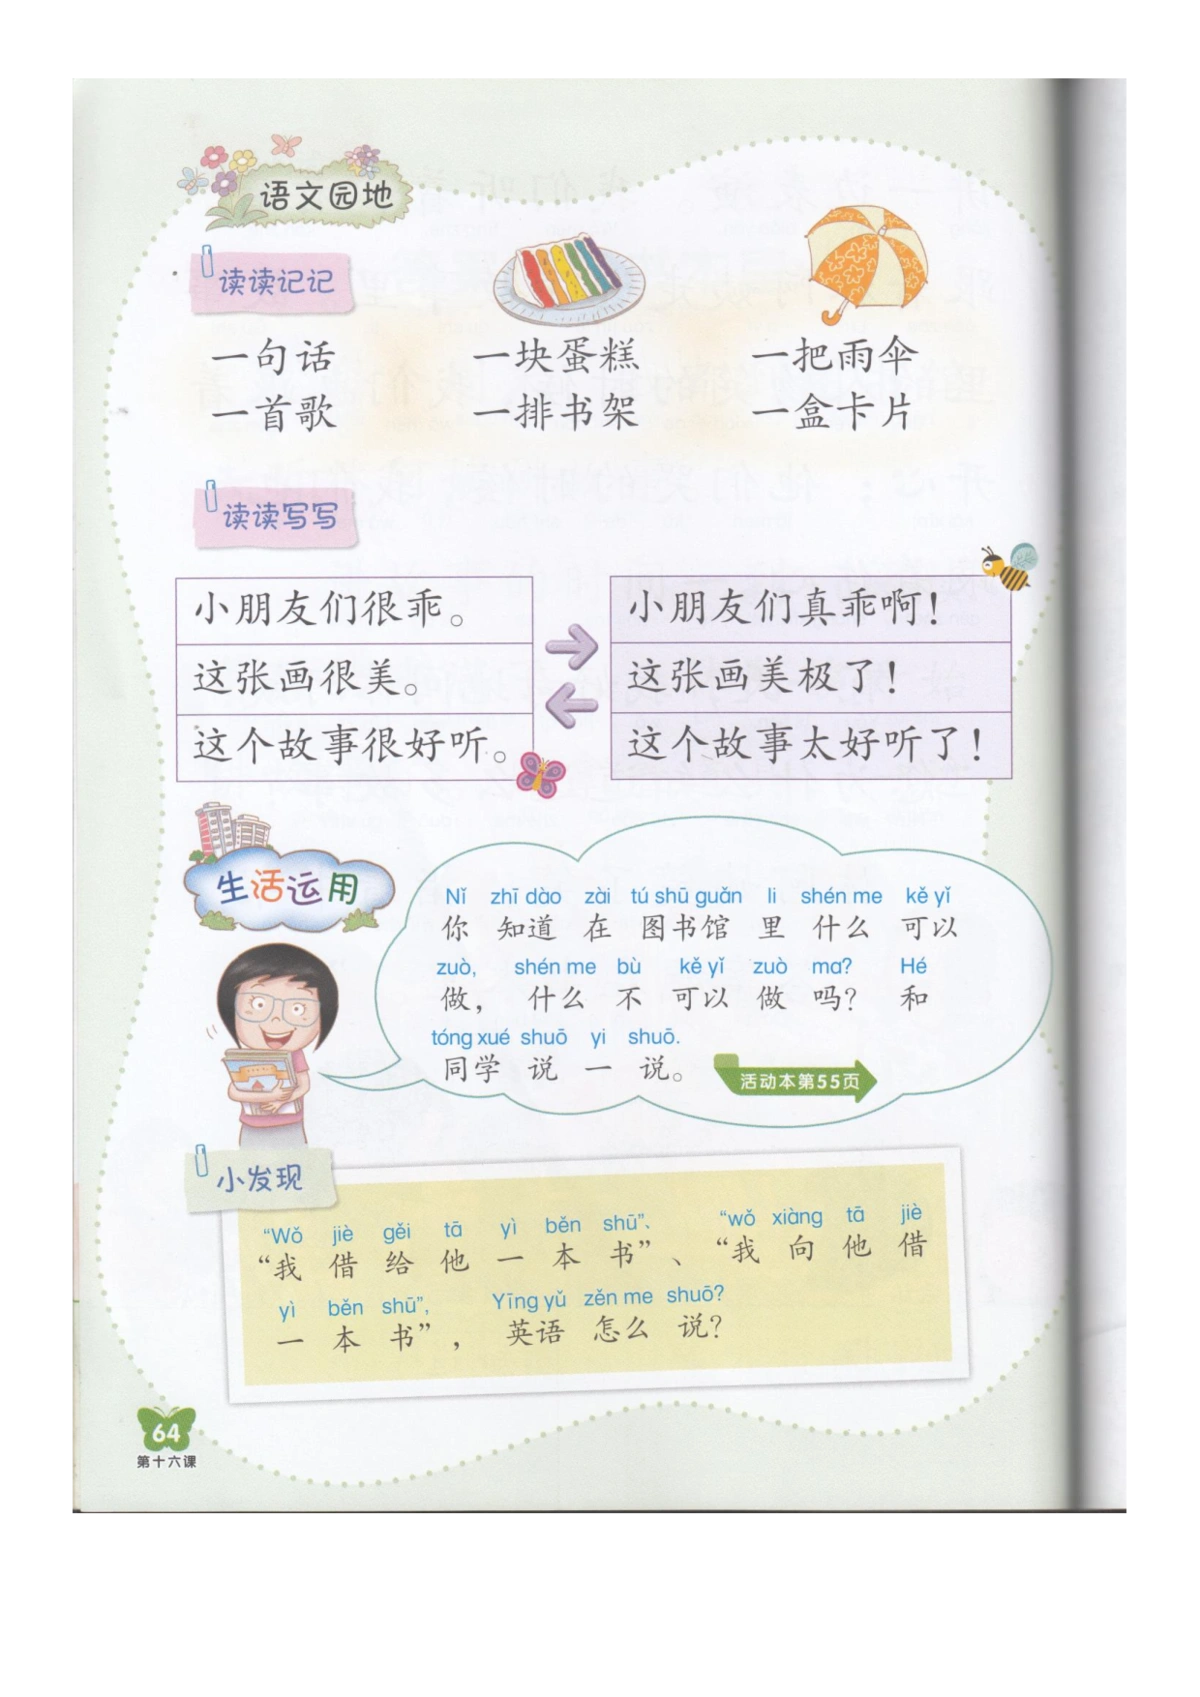 语文园地
读读记记
一句话 一块蛋糕 一把雨伞
一首歌 一排书架 一盒卡片
读读写写
小朋友们很乖。 小朋友们真乖啊！
这张画很美。 这张画美极了！
这个故事很好听。 这个故事太好听了！
生活运用
Nǐ zhī dào zài tú shū guǎn li shén me kě yǐ
你 知道 在 图书馆 里 什么 可以
zuò, shén me bù kě yǐ zuò ma? Hé
做， 什么 不 可以 做 吗？ 和
tóng xué shuō yi shuō.
同学 说 一 说。
活动本第55页
小发现
“Wǒ jiè gěi tā yì běn shū”、 “wǒ xiàng tā jiè
“我 借 给 他 一 本 书”、 “我 向 他 借
yì běn shū”, Yīng yǔ zěn me shuō?
一 本 书”， 英语 怎么 说？
64
第十六课